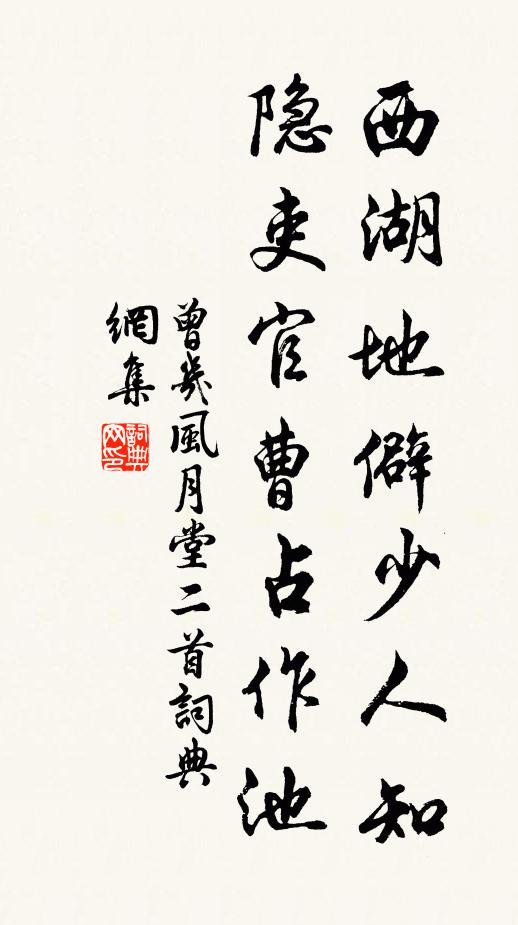 西湖地僻少人知
隐吏官曹占作池
曾幾風月堂二首詞典
網集
詞典
网印